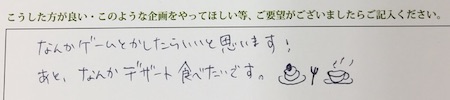 こうした方が良い・このような企画をやってほしい等、ご要望がございましたらご記入ください。
なんかゲームとかしたらいいと思います!
あと、なんかデザート食べたいです。